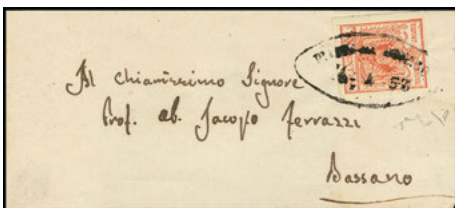 Al chiarissimo Signore
Prof. ab. Jacopo Ferrazzi
Bassano